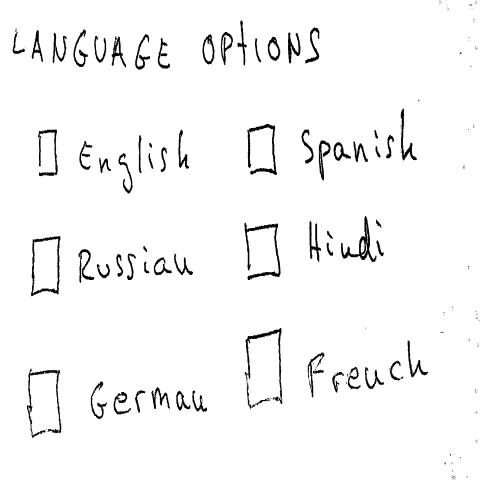 LANGUAGE OPTIONS
☐ English ☐ Spanish
☐ Russian ☐ Hindi
☐ German ☐ French